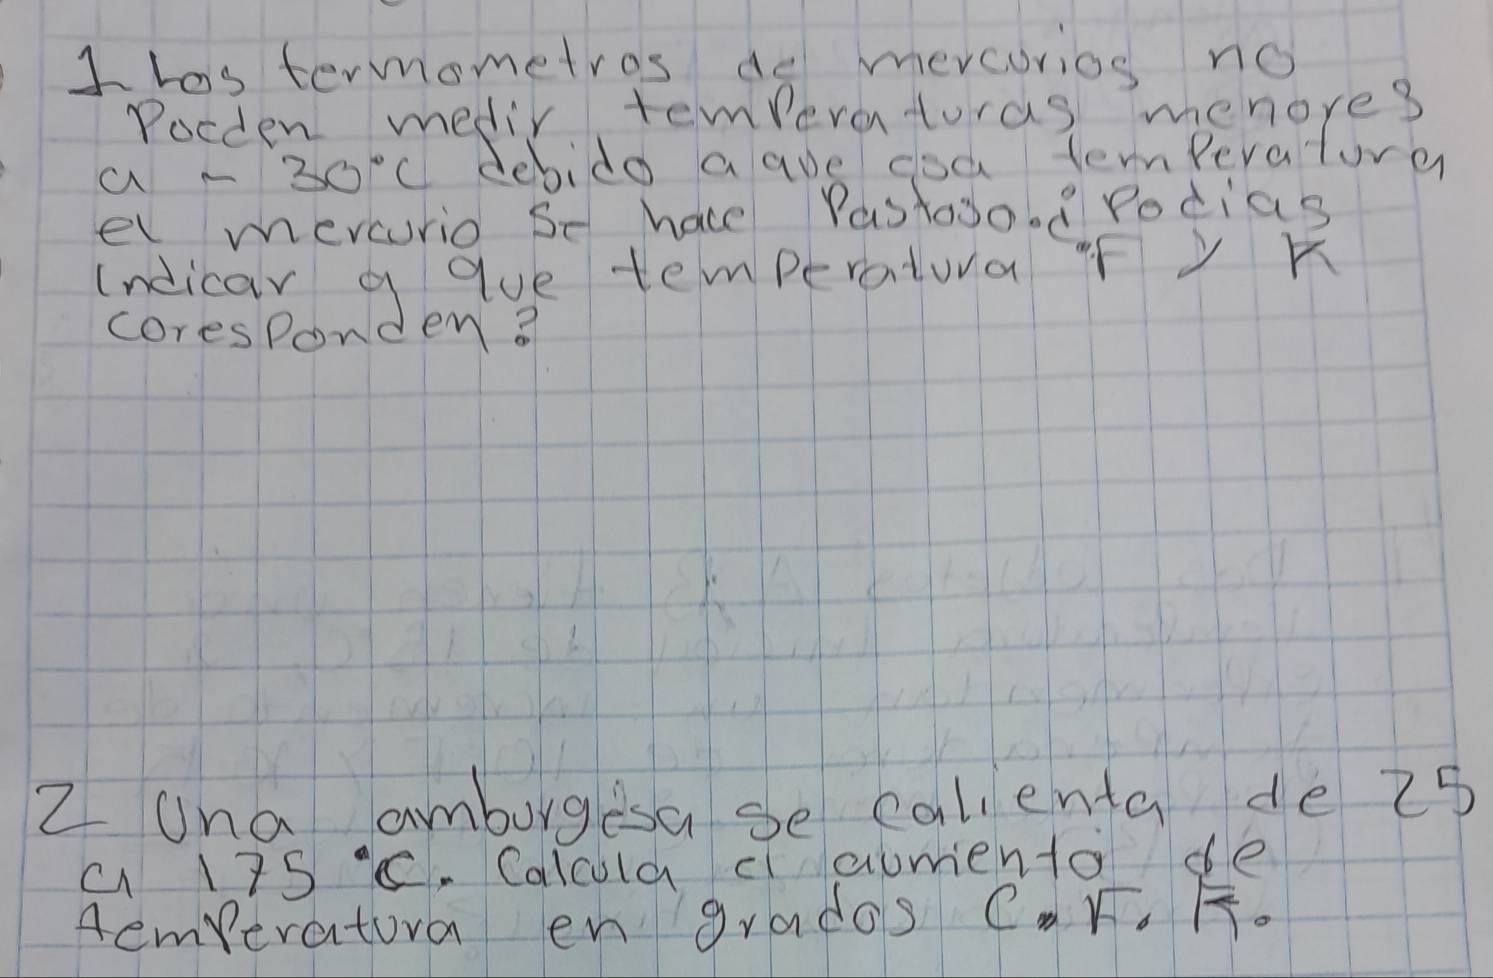 1 Los termometros de mercurios no
Poeden medir temperaturas menores
a - 30°C debido a que esa temperatura
el mercurio se hace Pastoso.¿Podias
indicar a que temperatura °F y K
coresponden?
2 Una amburgesa se calienta de 25
a 175 °C. Calcula el aumento de
temperatura en grados C. F. K.